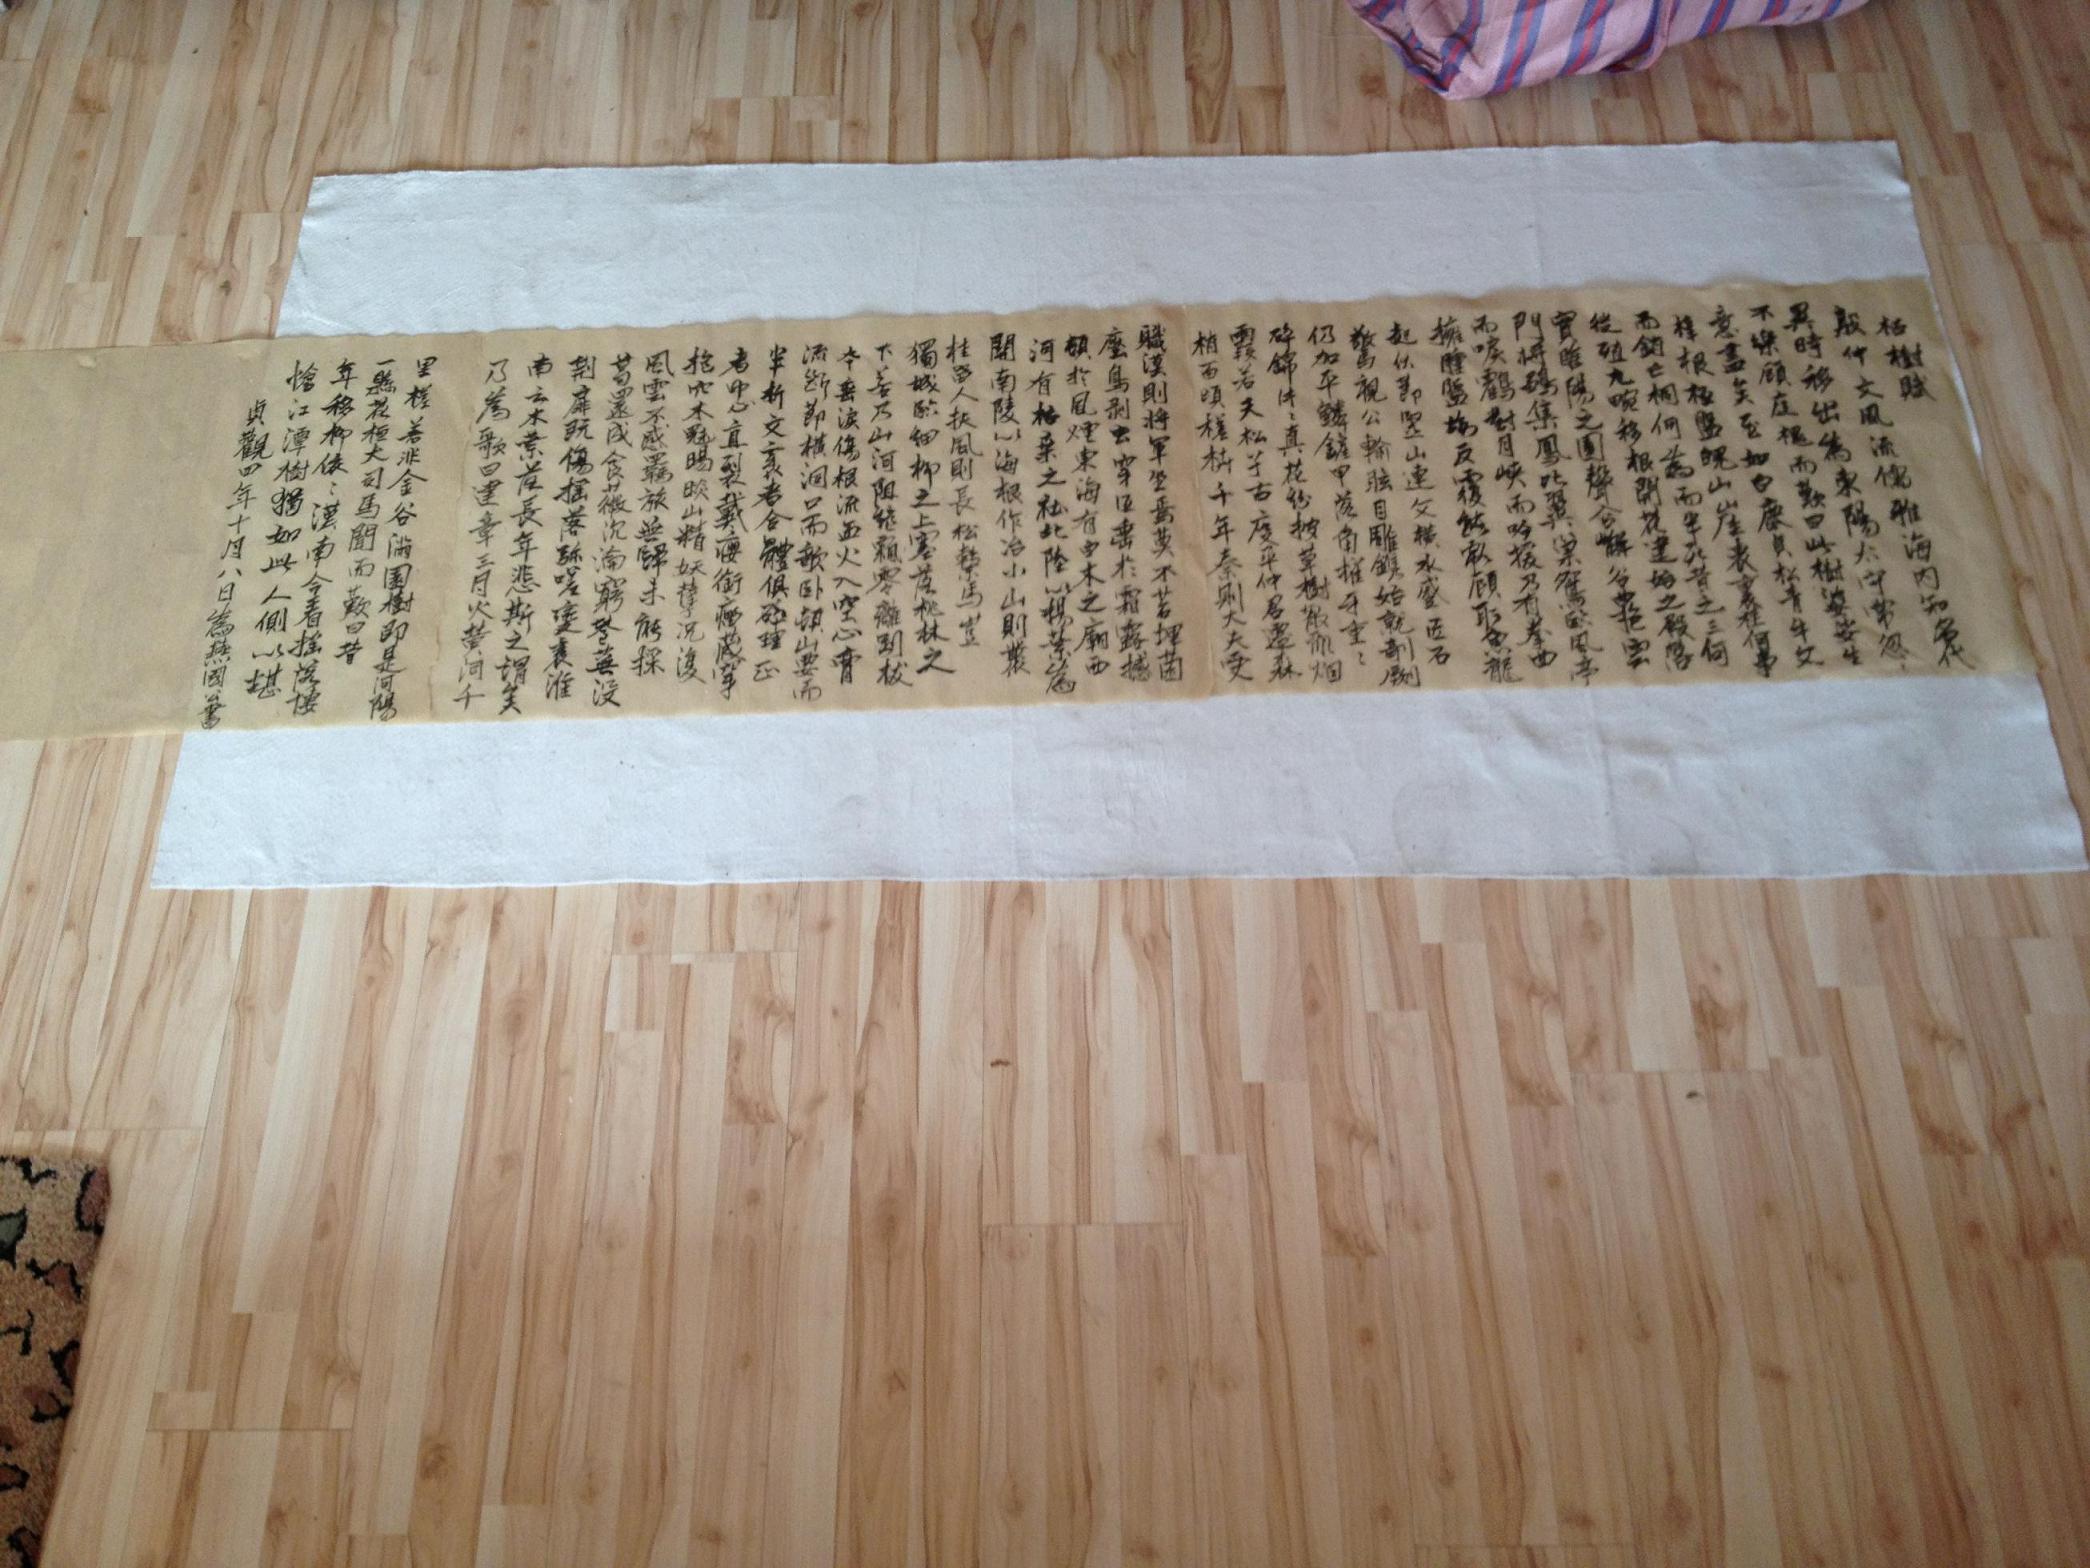 枯樹賦
殷仲文風流儒雅海内知名代
異時移出為東陽太守常忽〻
不樂顧庭槐而歎曰此樹婆娑生
意盡矣至如白鹿貞松青牛文
梓根柢盤魄山崖表裏桂何事
而銷亡桐何為而半死昔之三河
從殖九畹移根開花建始之殿落
實睢陽之園聲含嶰谷曲抱雲
門將鶵集鳳比翼巢鴛臨風亭
而唳鶴對月峽而吟猨乃有拳曲
擁腫盤坳反覆熊彪顧眄魚龍
起伏節豎山連文橫水蹙匠石
驚視公輸眩目雕鐫始就剞劂
仍加平鱗鏟甲落角摧牙重〻
碎錦片〻真花紛披草樹散亂烟
霞若夫松子古度平仲君遷森
梢百頃槎枿千年秦則大夫受
職漢則將軍坐焉莫不苔埋菌
壓鳥剥虫穿低垂於霜露撼
頓於風煙東海有白木之廟西
河有枯桑之社北陸以楊葉為
關南陵以梅根作冶小山則叢
桂留人扶風則長松繫馬豈
獨城臨細柳之上塞落桃林之
下若乃山河阻絶飄零離別拔
本垂淚傷根流血火入空心膏
流斷節橫洞口而欹卧頓山要而
半折文衺者合體俱碎理正
者中心直裂戴癭銜瘤藏穿
抱穴木魅睗睒山精妖孽況復
風雲不感羈旅無歸未能採
葛還成食薇沉淪窮巷蕪没
荆扉既傷搖落弥嗟變衰淮
南云木葉落長年悲斯之謂矣
乃為歌曰建章三月火黄河千
里槎若非金谷滿園樹即是河陽
一縣花桓大司馬聞而歎曰昔
年移柳依〻漢南今看搖落悽
愴江潭樹猶如此人何以堪
貞觀四年十月八日為燕國公書